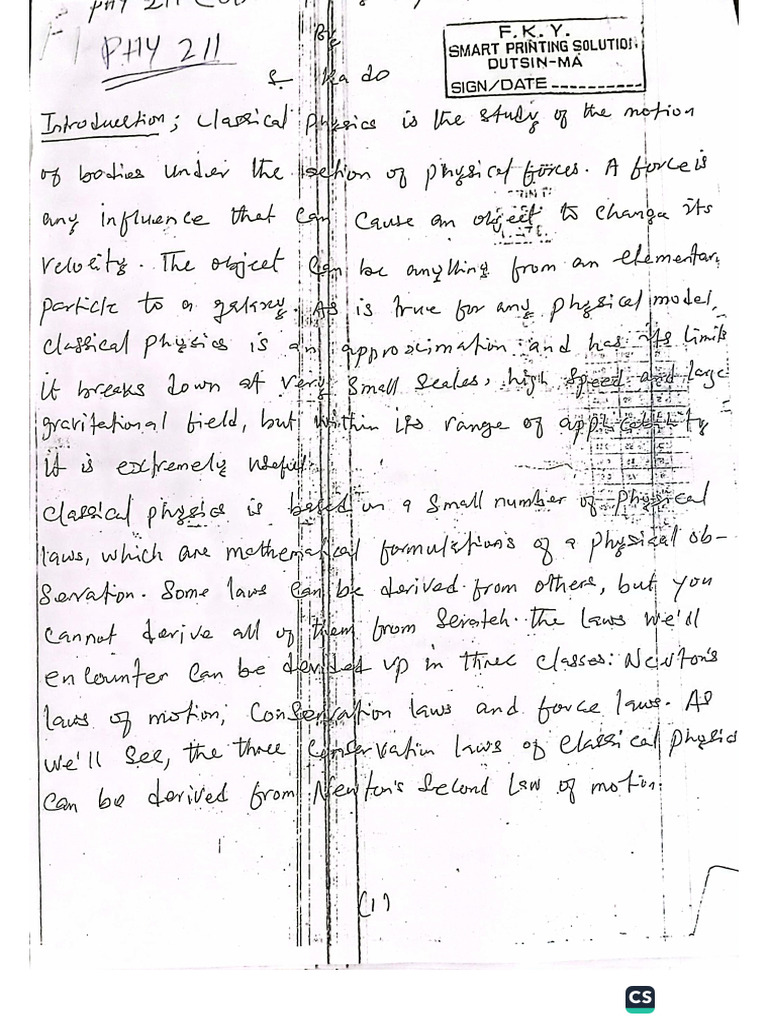 PHY 211
PHY 211
By
F. K. Y.
SMART PRINTING SOLUTION
DUTSIN-MA
SIGN/DATE
S. Kado
Introduction; Classical physics is the study of the motion
of bodies under the action of physical forces. A force is
any influence that can cause an object to change its
velocity. The object can be anything from an elementary
particle to a galaxy. As is true for any physical model,
classical physics is an approximation and has its limits
it breaks down at very small scales, high speed and large
gravitational field, but within its range of applicability
it is extremely useful.
Classical physics is based on a small number of physical
laws, which are mathematical formulations of a physical ob-
servation. Some laws can be derived from others, but you
cannot derive all of them from scratch. The laws we'll
encounter can be divided up in three classes: Newton's
laws of motion; Conservation laws and force laws. As
we'll see, the three conservation laws of classical physics
can be derived from Newton's second law of motion.
(1)
CS